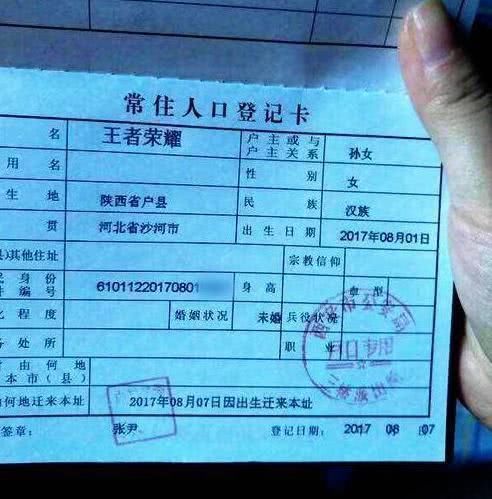 常住人口登记卡
名 王者荣耀 户主或与户主关系 孙女
用名 性别 女
生地 陕西省户县 民族 汉族
贯 河北省沙河市 出生日期 2017年08月01日
其他住址 宗教信仰
民身份件编号 61011220170801 身高 血型
化程度 婚姻状况 未婚 兵役状况
务处所 职业
时由何地
本市(县)
何地迁来本址 2017年08月07日因出生迁来本址
签章: 张尹 登记日期: 2017 08 07